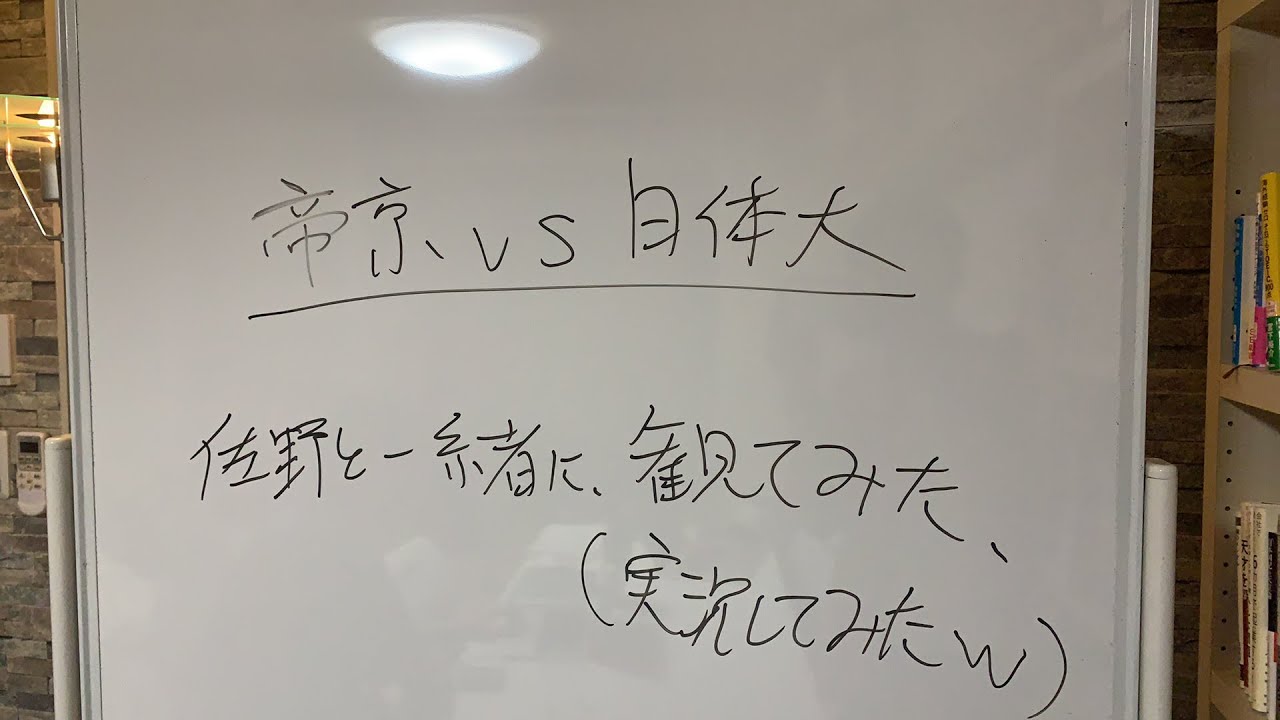 帝京 vs 日体大
佐野と一緒に、観てみた、
(実況してみたw)